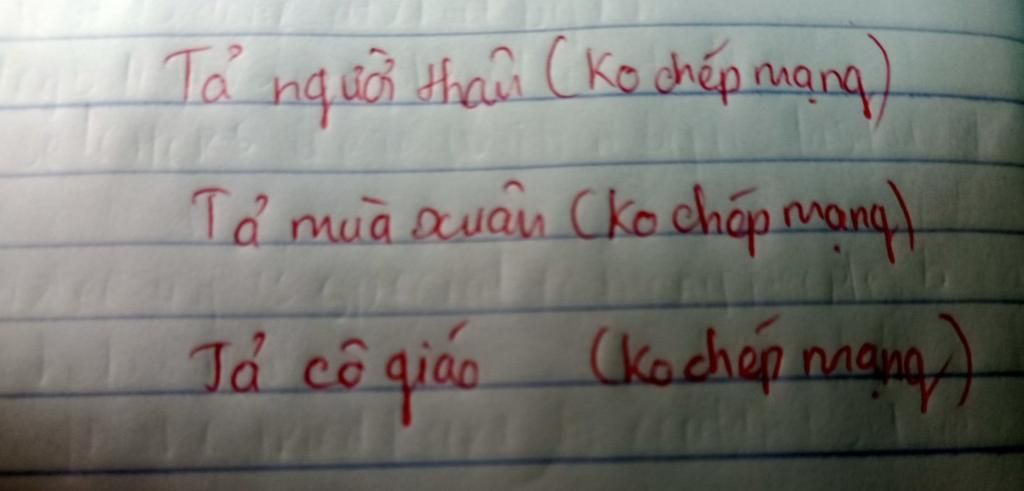 Tả người thân (Ko chép mạng)
Tả mùa xuân (Ko chép mạng)
Tả cô giáo (Ko chép mạng)